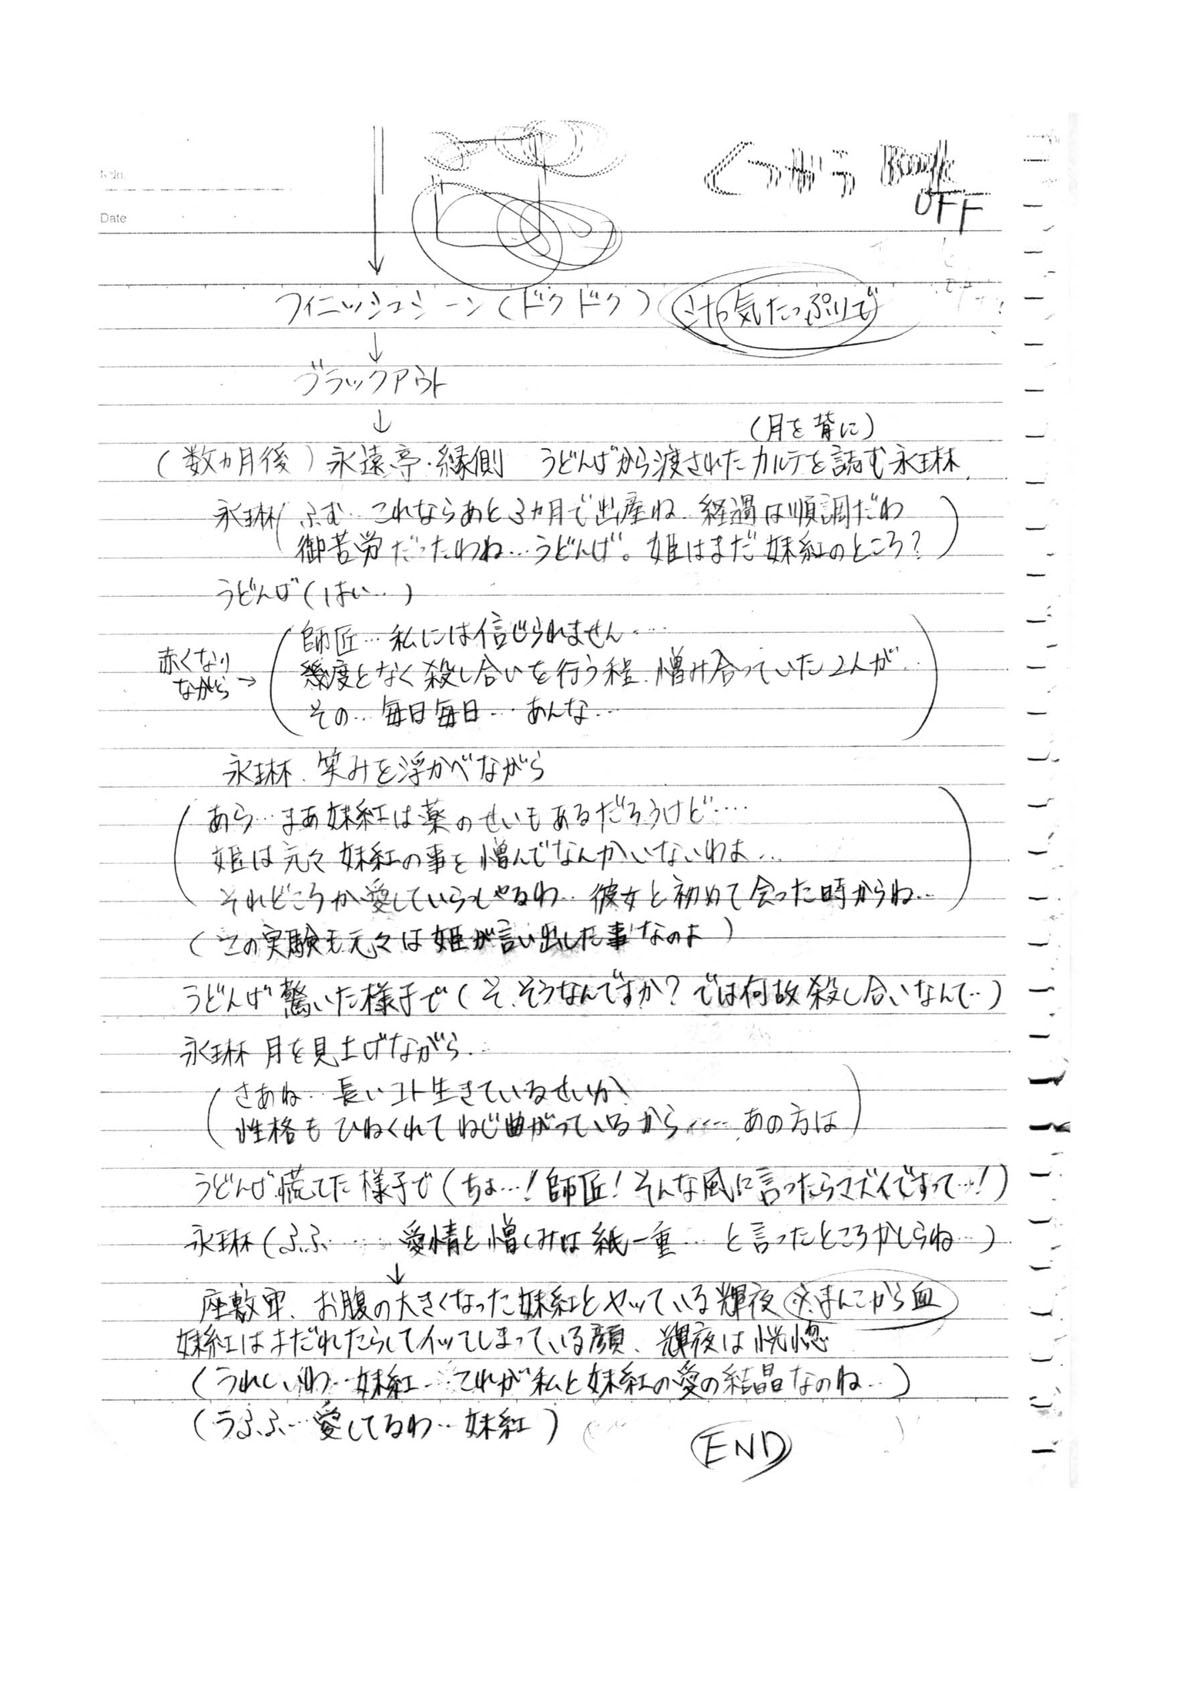 No.
Date
OFF
フィニッシュシーン(ドクドク) 気たっぷりで
↓
ブラックアウト
↓
(月を背に)
(数ヵ月後)永遠亭・縁側 うどんげから渡されたカルテを読む永琳
永琳(ふむ… これならあと3ヵ月で出産ね 経過は順調だわ
御苦労だったわね…うどんげ。姫はまだ妹紅のところ?)
うどんげ(はい…)
赤くなりながら→
(師匠… 私には信じられません…
幾度となく殺し合いを行う程、憎み合っていた2人が…
その… 毎日毎日… あんな…)
永琳、笑みを浮かべながら
(あら… まあ妹紅は薬のせいもあるだろうけど…
姫は元々妹紅の事を憎んでなんかいないわよ…
それどころか愛していらっしゃるわ… 彼女と初めて会った時からね…)
(この実験も元々は姫が言い出した事なのよ)
うどんげ驚いた様子で(そ、そうなんですか? では何故殺し合いなんて…)
永琳 月を見上げながら…
(さあね… 長いコト生きているせいか、
性格もひねくれてねじ曲がっているから…… あの方は)
うどんげ慌てた様子で(ちょ…! 師匠! そんな風に言ったらマズイですって…!)
永琳(ふふ…… 愛情と憎しみは紙一重… と言ったところかしらね…)
↓
座敷牢、お腹の大きくなった妹紅とヤッている輝夜 まんこから血
妹紅はよだれたらしてイッてしまっている顔、輝夜は恍惚
(うれしいわ… 妹紅… これが私と妹紅の愛の結晶なのね…)
(うふふ… 愛してるわ… 妹紅)
END